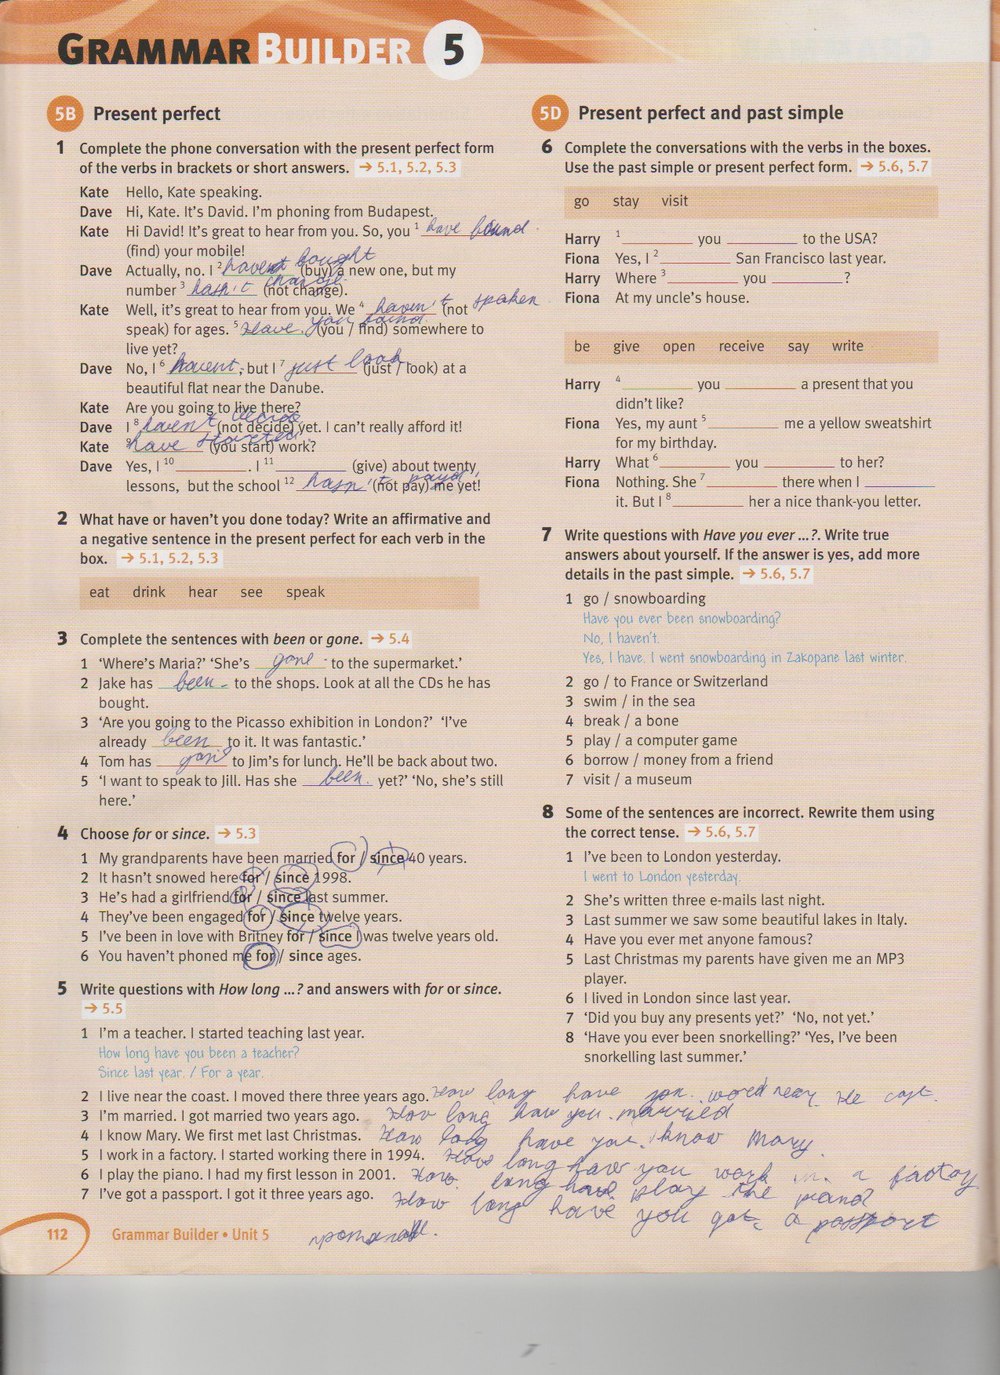 GRAMMAR BUILDER 5
5B Present perfect
1 Complete the phone conversation with the present perfect form
of the verbs in brackets or short answers. → 5.1, 5.2, 5.3
Kate Hello, Kate speaking.
Dave Hi, Kate. It's David. I'm phoning from Budapest.
Kate Hi David! It's great to hear from you. So, you 1 have found
(find) your mobile!
Dave Actually, no. I 2 havent bought (buy) a new one, but my
number 3 hasn't change (not change).
Kate Well, it's great to hear from you. We 4 haven't spoken (not
speak) for ages. 5 Have you found (you / find) somewhere to
live yet?
Dave No, I 6 havent, but I 7 just look (just / look) at a
beautiful flat near the Danube.
Kate Are you going to live there?
Dave I 8 haven't decide (not decide) yet. I can't really afford it!
Kate 9 have started (you start) work?
Dave Yes, I 10 . I 11 (give) about twenty
lessons, but the school 12 hasn't payd (not pay) me yet!
2 What have or haven't you done today? Write an affirmative and
a negative sentence in the present perfect for each verb in the
box. → 5.1, 5.2, 5.3
eat drink hear see speak
3 Complete the sentences with been or gone. → 5.4
1 'Where's Maria?' 'She's gone to the supermarket.'
2 Jake has been to the shops. Look at all the CDs he has
bought.
3 'Are you going to the Picasso exhibition in London?' 'I've
already been to it. It was fantastic.'
4 Tom has gone to Jim's for lunch. He'll be back about two.
5 'I want to speak to Jill. Has she been yet?' 'No, she's still
here.'
4 Choose for or since. → 5.3
1 My grandparents have been married for / since 40 years.
2 It hasn't snowed here for / since 1998.
3 He's had a girlfriend for / since last summer.
4 They've been engaged for / since twelve years.
5 I've been in love with Britney for / since I was twelve years old.
6 You haven't phoned me for / since ages.
5 Write questions with How long ...? and answers with for or since.
→ 5.5
1 I'm a teacher. I started teaching last year.
How long have you been a teacher?
Since last year. / For a year.
2 I live near the coast. I moved there three years ago. How long have you near
3 I'm married. I got married two years ago. How long have you married
4 I know Mary. We first met last Christmas. How long have you know Mary
5 I work in a factory. I started working there in 1994. How long have you work in a factory
6 I play the piano. I had my first lesson in 2001. How long have play the piano?
7 I've got a passport. I got it three years ago. How long have you got a passport
112 Grammar Builder • Unit 5
5D Present perfect and past simple
6 Complete the conversations with the verbs in the boxes.
Use the past simple or present perfect form. → 5.6, 5.7
go stay visit
Harry 1 you to the USA?
Fiona Yes, I 2 San Francisco last year.
Harry Where 3 you ?
Fiona At my uncle's house.
be give open receive say write
Harry 4 you a present that you
didn't like?
Fiona Yes, my aunt 5 me a yellow sweatshirt
for my birthday.
Harry What 6 you to her?
Fiona Nothing. She 7 there when I
it. But I 8 her a nice thank-you letter.
7 Write questions with Have you ever ...?. Write true
answers about yourself. If the answer is yes, add more
details in the past simple. → 5.6, 5.7
1 go / snowboarding
Have you ever been snowboarding?
No, I haven't.
Yes, I have. I went snowboarding in Zakopane last winter.
2 go / to France or Switzerland
3 swim / in the sea
4 break / a bone
5 play / a computer game
6 borrow / money from a friend
7 visit / a museum
8 Some of the sentences are incorrect. Rewrite them using
the correct tense. → 5.6, 5.7
1 I've been to London yesterday.
I went to London yesterday.
2 She's written three e-mails last night.
3 Last summer we saw some beautiful lakes in Italy.
4 Have you ever met anyone famous?
5 Last Christmas my parents have given me an MP3
player.
6 I lived in London since last year.
7 'Did you buy any presents yet?' 'No, not yet.'
8 'Have you ever been snorkelling?' 'Yes, I've been
snorkelling last summer.'